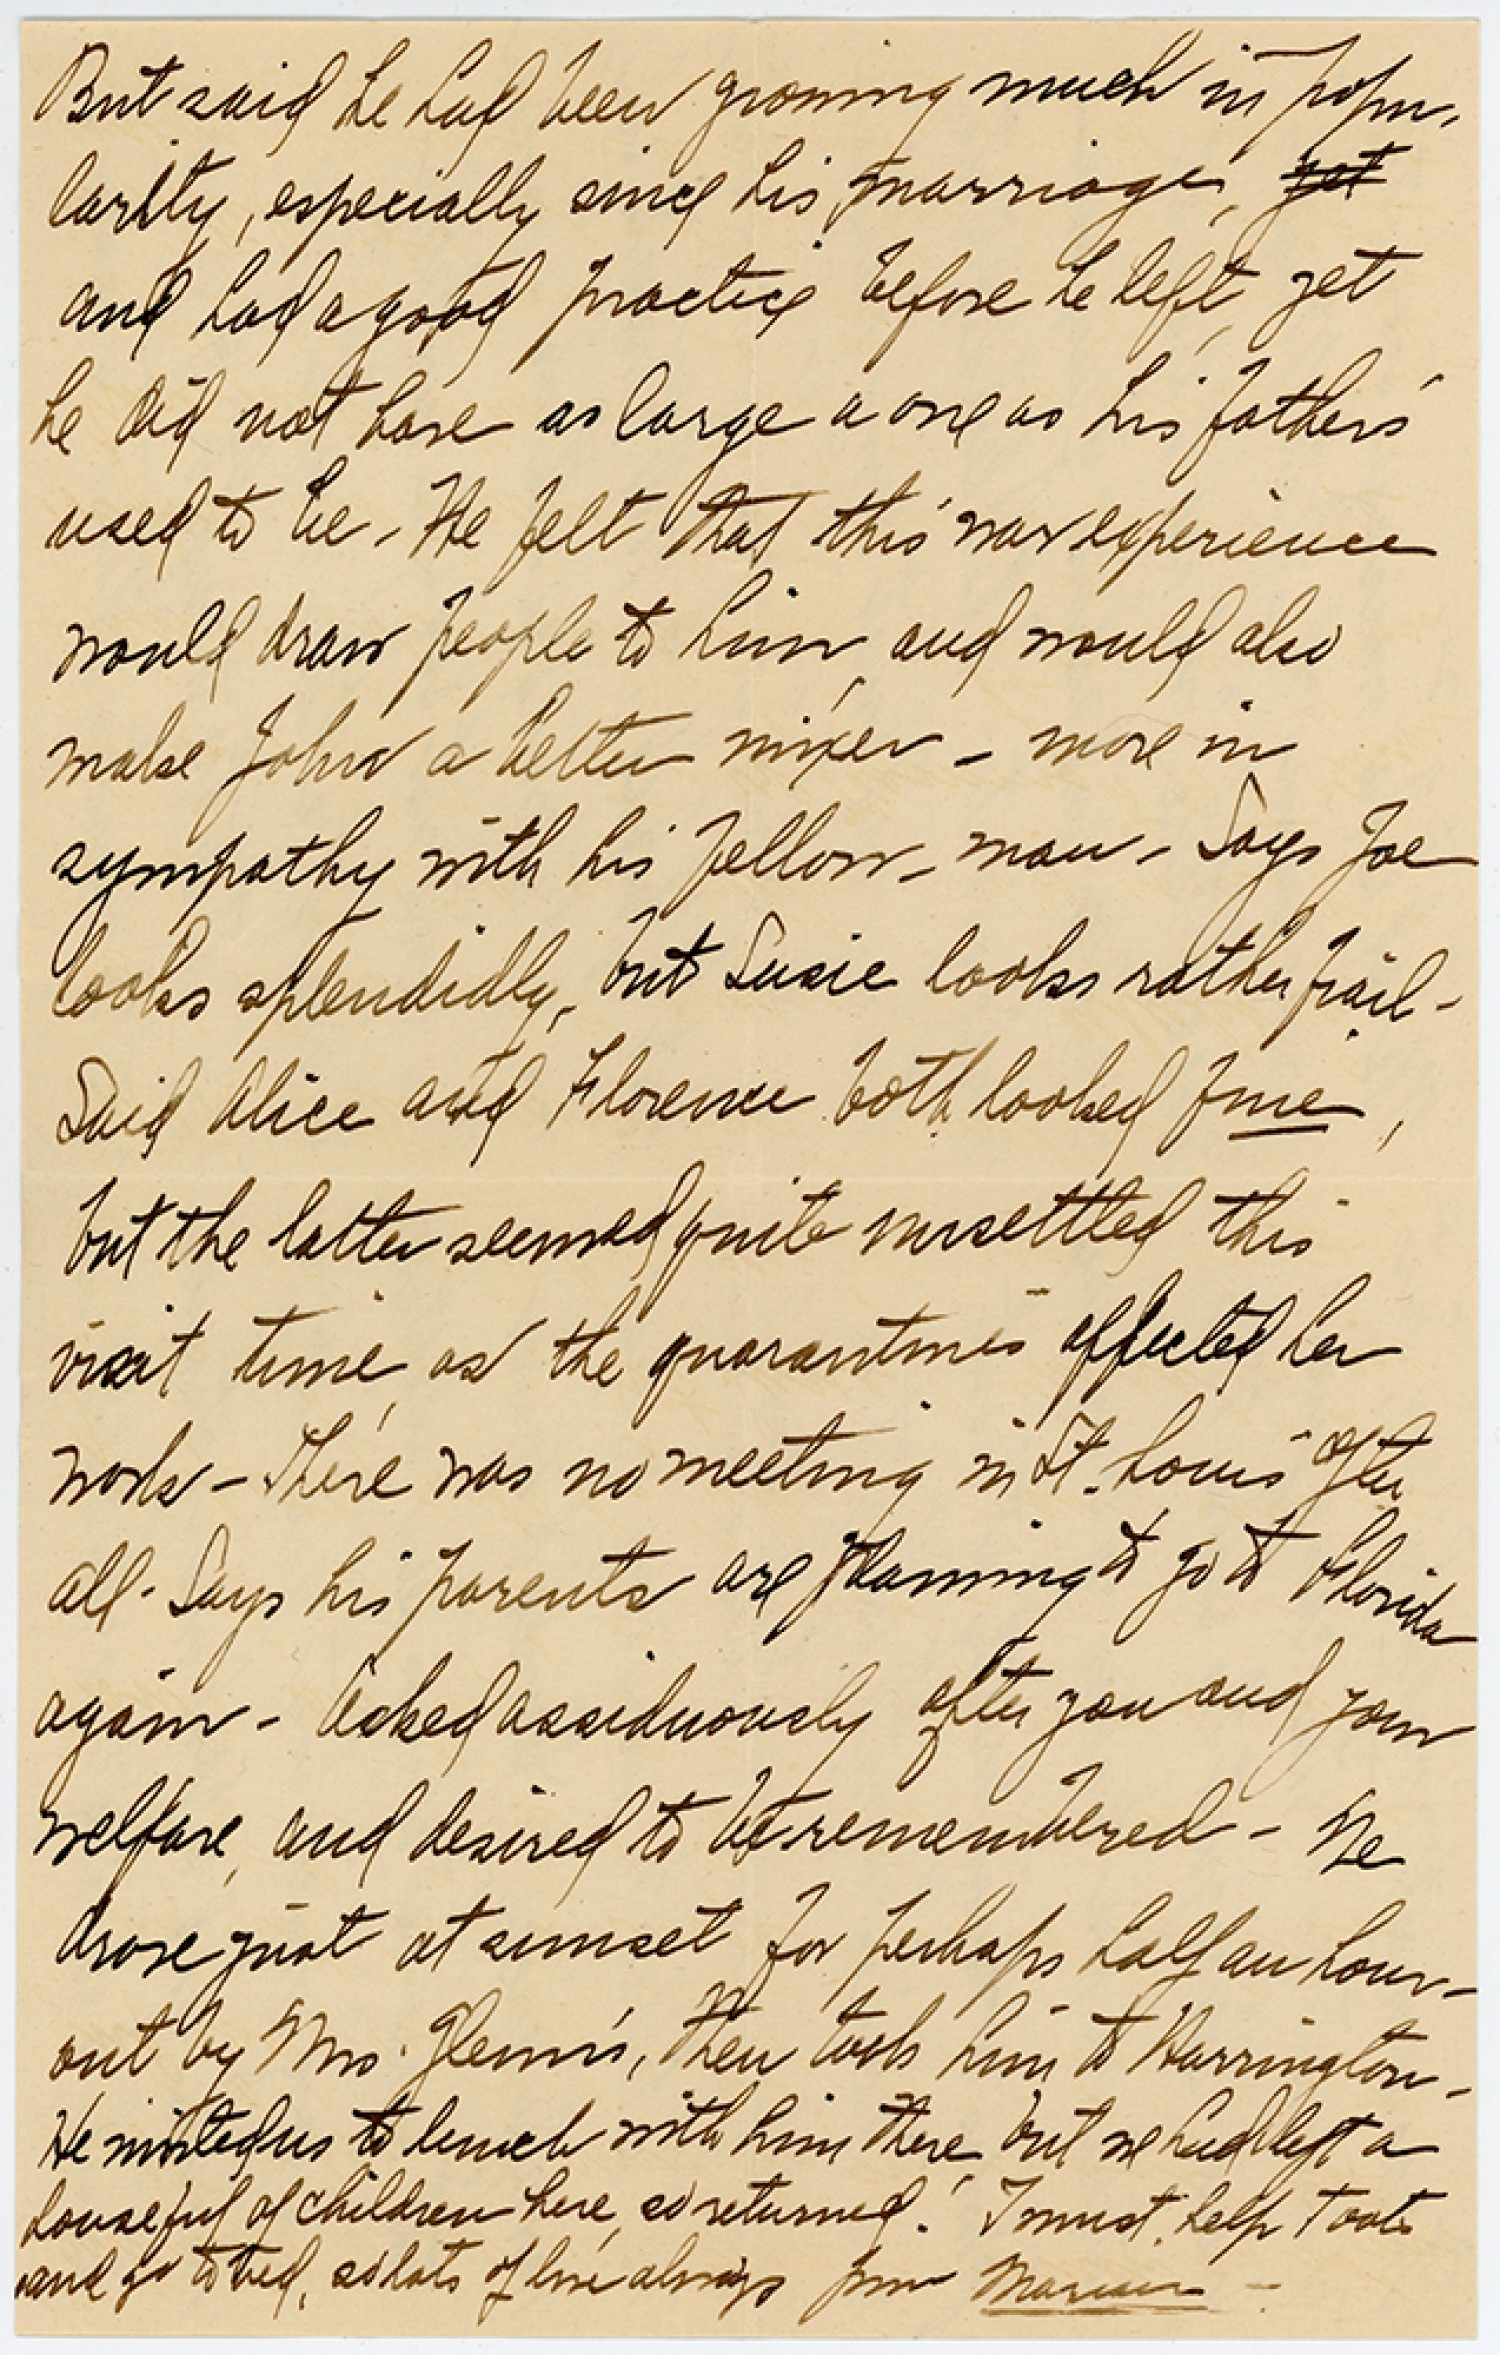 But said he had been growing much in popu-
larity, especially since his marriage, yet
and had a good practice before he left, yet
he did not have as large a one as his father's
used to be - He felt that this war experience
would draw people to him, and would also
make John a better mixer - more in
sympathy with his fellow-man - Says Joe
looks splendidly, but Susie looks rather frail -
Said Alice and Florence both looked fine,
but the latter seemed quite unsettled this
visit time, as the quarantines affected her
work - There was no meeting in St. Louis after
all - Says his parents are planning to go to Florida
again - Asked assiduously after you and your
welfare, and desired to be remembered - We
drove just at sunset for perhaps half an hour -
out by Mrs. Glenn's, then took him to Harrington -
He invited us to lunch with him there, but we had left a
houseful of children here, so returned! I must help Toots
and go to bed, so lots of love always from Marian -